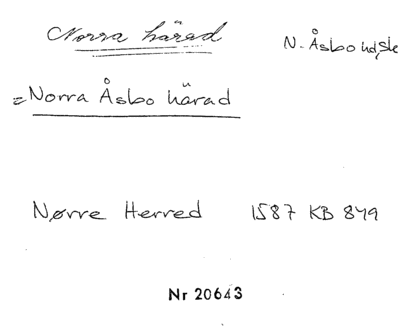 Norra härad
N. Åsbo hd, Sk
= Norra Åsbo härad
Nørre Herred 1587 KB 849
Nr 20643